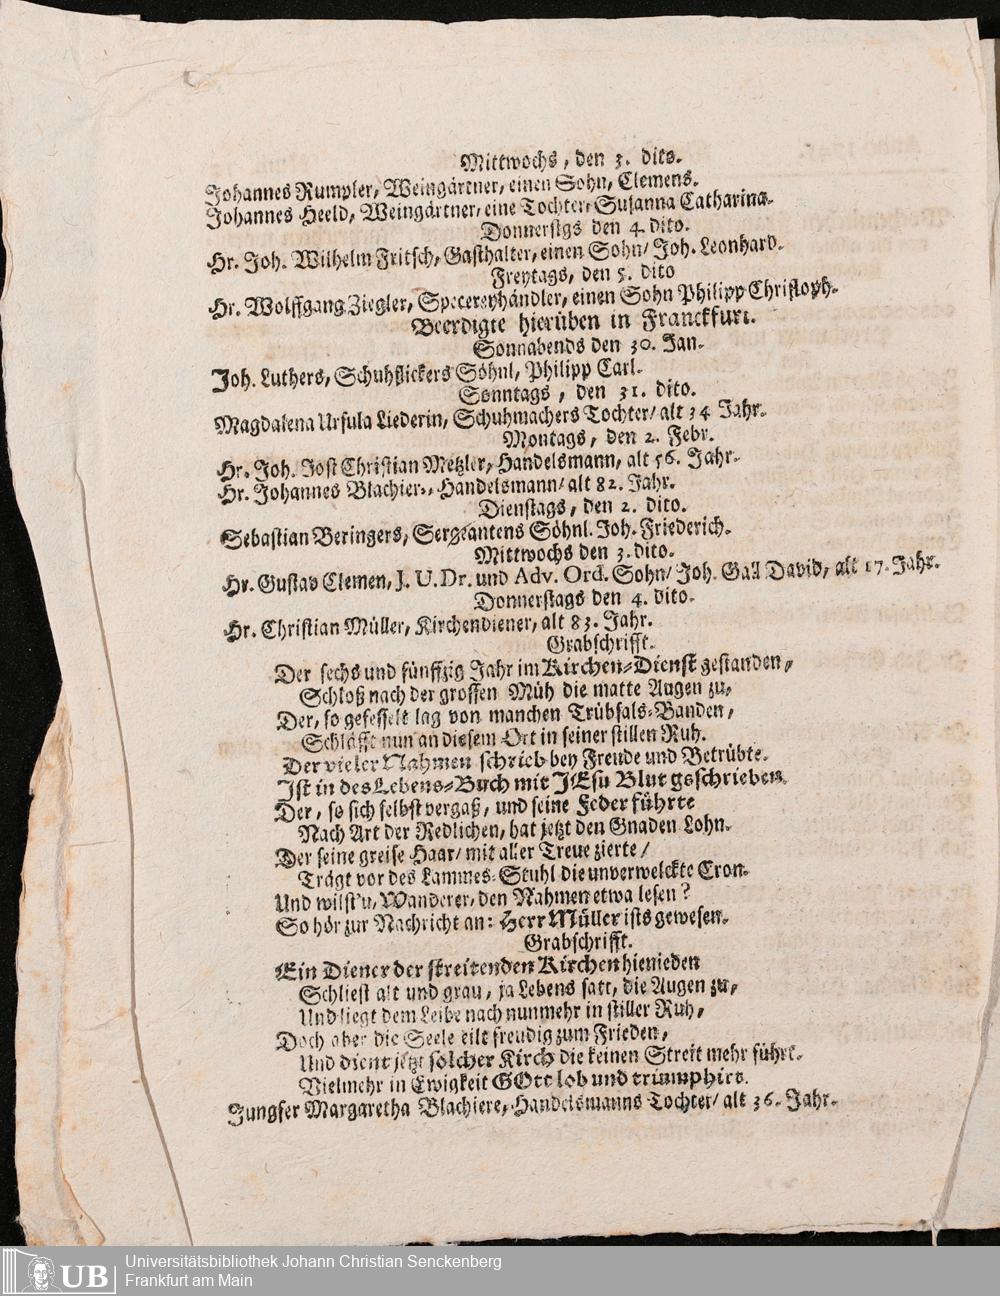 Mittwochs, den 3. dito.
Johannes Rumpler, Weingärtner, einen Sohn, Clemens.
Johannes Heeld, Weingärtner, eine Tochter, Susanna Catharina.
Donnerstgs den 4. dito.
Hr. Joh. Wilhelm Fritsch, Gasthalter, einen Sohn/ Joh. Leonhard.
Freytags, den 5. dito
Hr. Wolffgang Ziegler, Specereyhändler, einen Sohn Philipp Christoph.
Beerdigte hierüben in Franckfurt.
Sonnabends den 30. Jan.
Joh. Luthers, Schuhflickers Söhnl, Philipp Carl.
Sonntags, den 31. dito.
Magdalena Ursula Liederin, Schuhmachers Tochter/ alt 34 Jahr.
Montags, den 2. Febr.
Hr. Joh. Jost Christian Metzler, Handelsmann, alt 56. Jahr.
Hr. Johannes Blachier, Handelsmann/ alt 82. Jahr.
Dienstags, den 2. dito.
Sebastian Beringers, Sergeantens Söhnl. Joh. Friederich.
Mittwochs den 3. dito.
Hr. Gustav Clemen, J. U. Dr. und Adv. Ord. Sohn/ Joh. Gall David, alt 17. Jahr.
Donnerstags den 4. dito.
Hr. Christian Müller, Kirchendiener, alt 83. Jahr.
Grabschrifft.
Der sechs und fünffzig Jahr im Kirchen-Dienst gestanden,
Schloß nach der grossen Müh die matte Augen zu,
Der, so gefesselt lag von manchen Trübsals-Banden,
Schläfft nun an diesem Ort in seiner stillen Ruh.
Der vieler Nahmen schrieb bey Freude und Betrübte.
Ist in des Lebens-Buch mit JEsu Blut geschrieben.
Der, so sich selbst vergaß, und seine Feder führte
Nach Art der Redlichen, hat jetzt den Gnaden Lohn.
Der seine greise Haar/ mit aller Treue zierte/
Trägt vor des Lammes-Stuhl die unverwelckte Cron.
Und wilst'u, Wanderer, den Nahmen etwa lesen?
So hör zur Nachricht an: Herr Müller ists gewesen.
Grabschrifft.
Ein Diener der streitenden Kirchen hienieden
Schliest alt und grau, ja Lebens satt, die Augen zu,
Und liegt dem Leibe nach nunmehr in stiller Ruh,
Doch aber die Seele eilt freudig zum Frieden,
Und dient jetzt solcher Kirch die keinen Streit mehr führt.
Vielmehr in Ewigkeit GOtt lob und triumphirt.
Jungfer Margaretha Blachiere, Handelsmanns Tochter/ alt 36. Jahr.
UB
Universitätsbibliothek Johann Christian Senckenberg
Frankfurt am Main